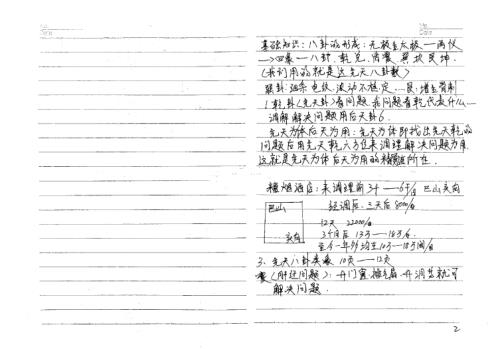 基础知识：八卦的形成：无极生太极——两仪
→四象——八卦，乾兑离震巽坎艮坤
（我们用的就是这先天八卦数）
1乾卦（先天卦）看问题，看问题看乾代表什么...
调解解决问题用后天卦6.
先天为体后天为用：先天为体即找出先天乾的
问题后用先天乾六方位来调理解决问题为用
这就是先天为体后天为用的精髓所在.
酒店：未调理前 3千——6千/日 巴山
巴山
经调后：三天后8000/日
12天 22000/日
3个月后 13万——18万/日.
至今一年外均在10万—18万间/日
3、先天八卦类象 10页——12页
（解法问题）：开门窗，排气扇，开洞就可
解决问题.
2